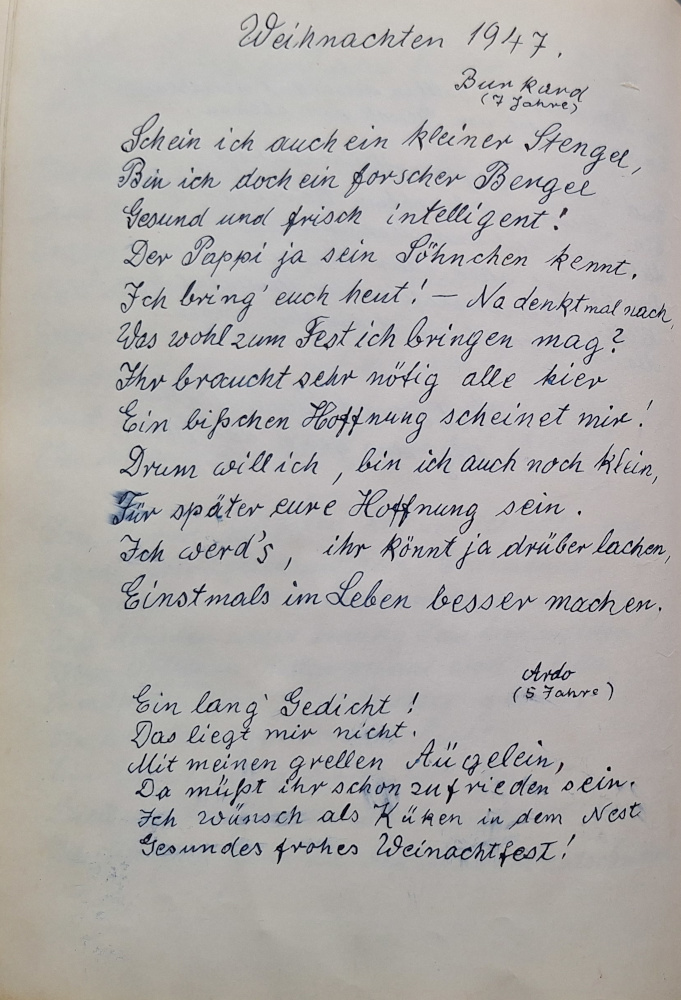 Weihnachten 1947.
Burkard
(7 Jahre)
Schein ich auch ein kleiner Stengel,
Bin ich doch ein forscher Bengel
Gesund und frisch intelligent!
Der Pappi ja sein Söhnchen kennt.
Ich bring' euch heut! – Na denkt mal nach,
Was wohl zum Fest ich bringen mag?
Ihr braucht sehr nötig alle hier
Ein bißchen Hoffnung scheinet mir!
Drum will ich, bin ich auch noch klein,
Für später eure Hoffnung sein.
Ich werd's, ihr könnt ja drüber lachen,
Einstmals im Leben besser machen.
Ardo
(5 Jahre)
Ein lang' Gedicht!
Das liegt mir nicht.
Mit meinen grellen Äugelein,
Da müßt ihr schon zufrieden sein.
Ich wünsch als Küken in dem Nest
Gesundes frohes Weinachtfest!